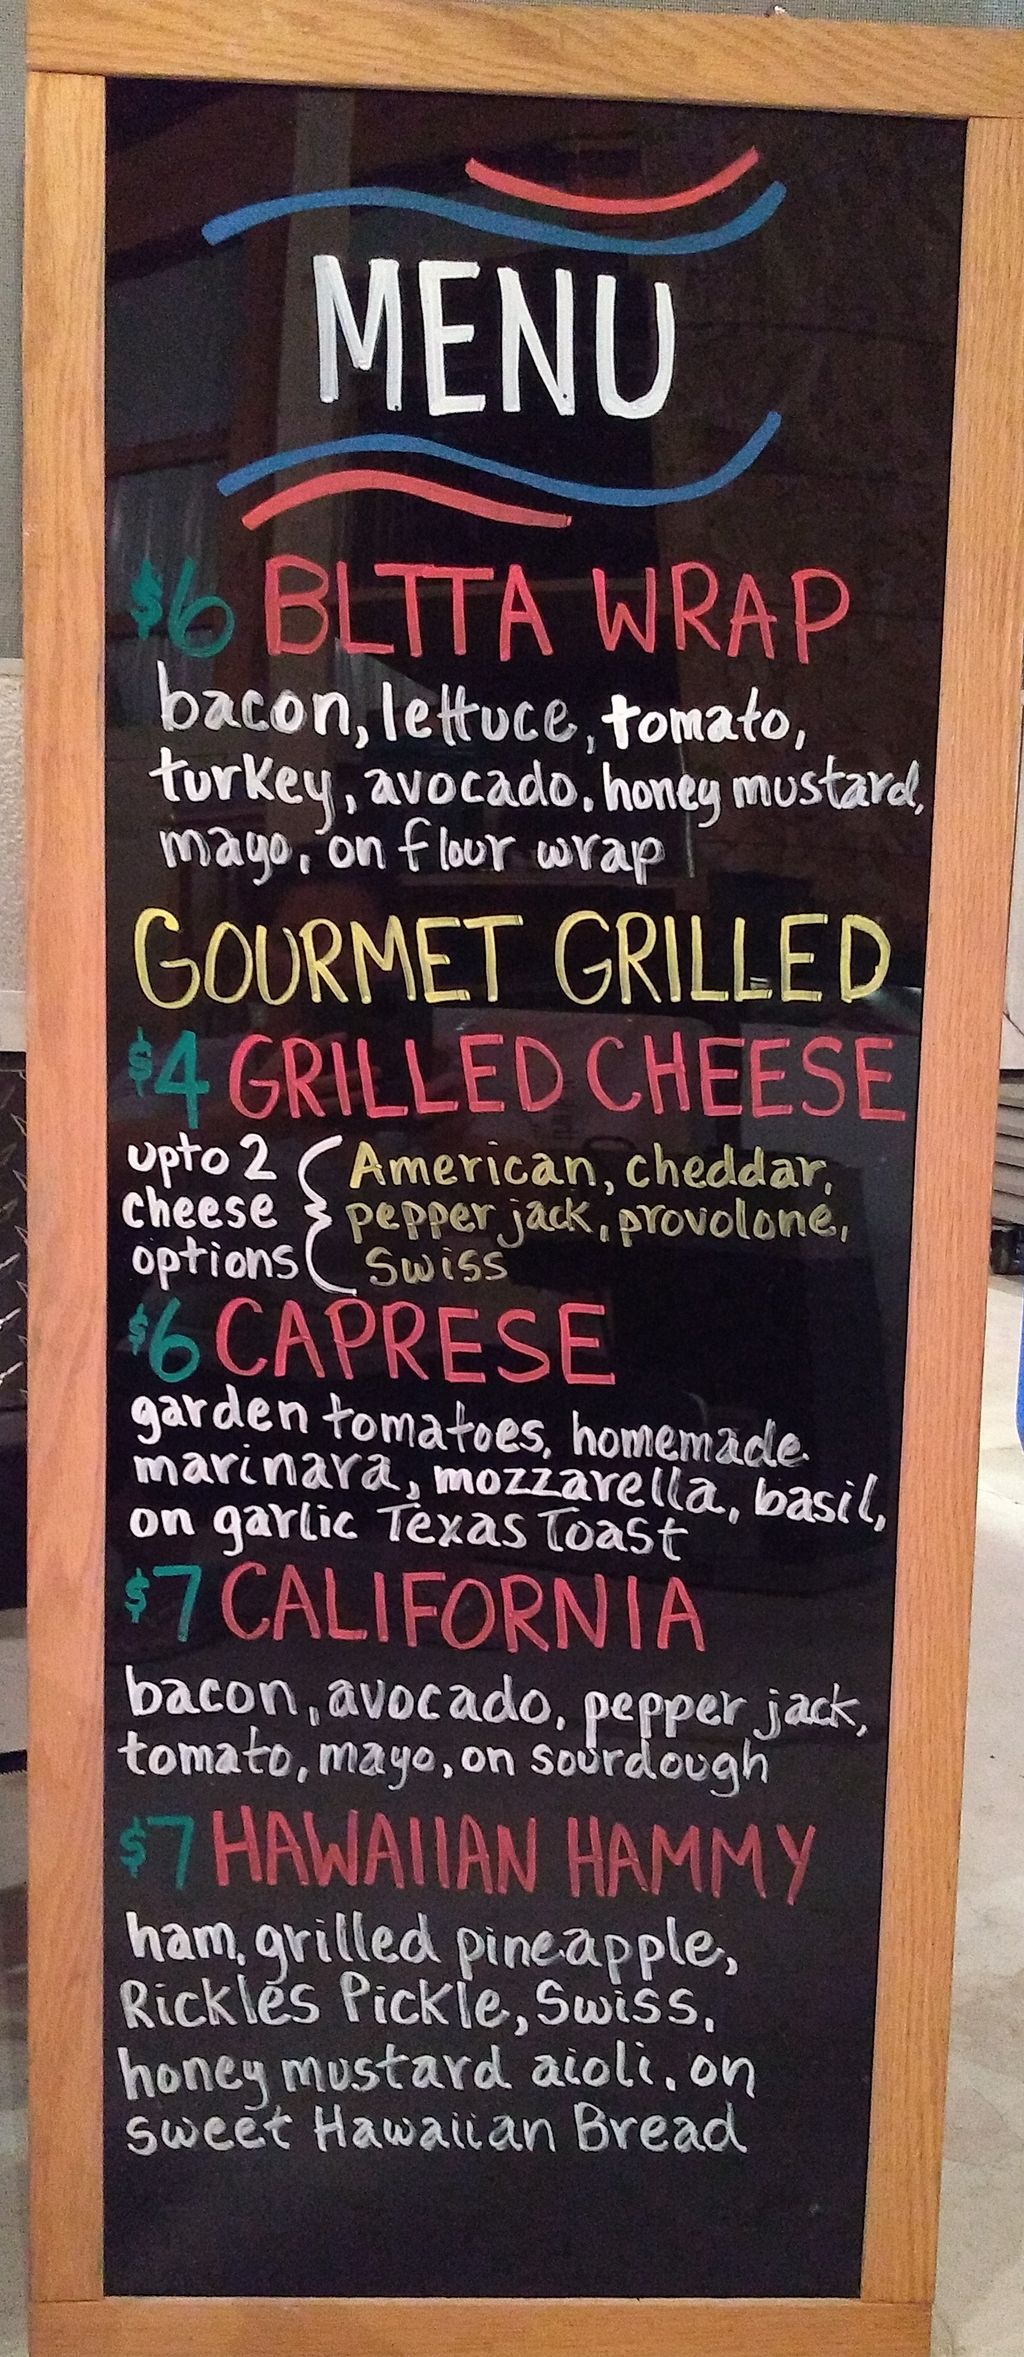 MENU
$6 BLTTA WRAP
bacon, lettuce, tomato,
turkey, avocado, honey mustard,
mayo, on flour wrap
GOURMET GRILLED
$4 GRILLED CHEESE
upto 2 { American, cheddar,
cheese pepper jack, provolone,
options Swiss
$6 CAPRESE
garden tomatoes, homemade
marinara, mozzarella, basil,
on garlic Texas Toast
$7 CALIFORNIA
bacon, avocado, pepper jack,
tomato, mayo, on sourdough
$7 HAWAIIAN HAMMY
ham, grilled pineapple,
Rickles Pickle, Swiss,
honey mustard aioli, on
sweet Hawaiian Bread